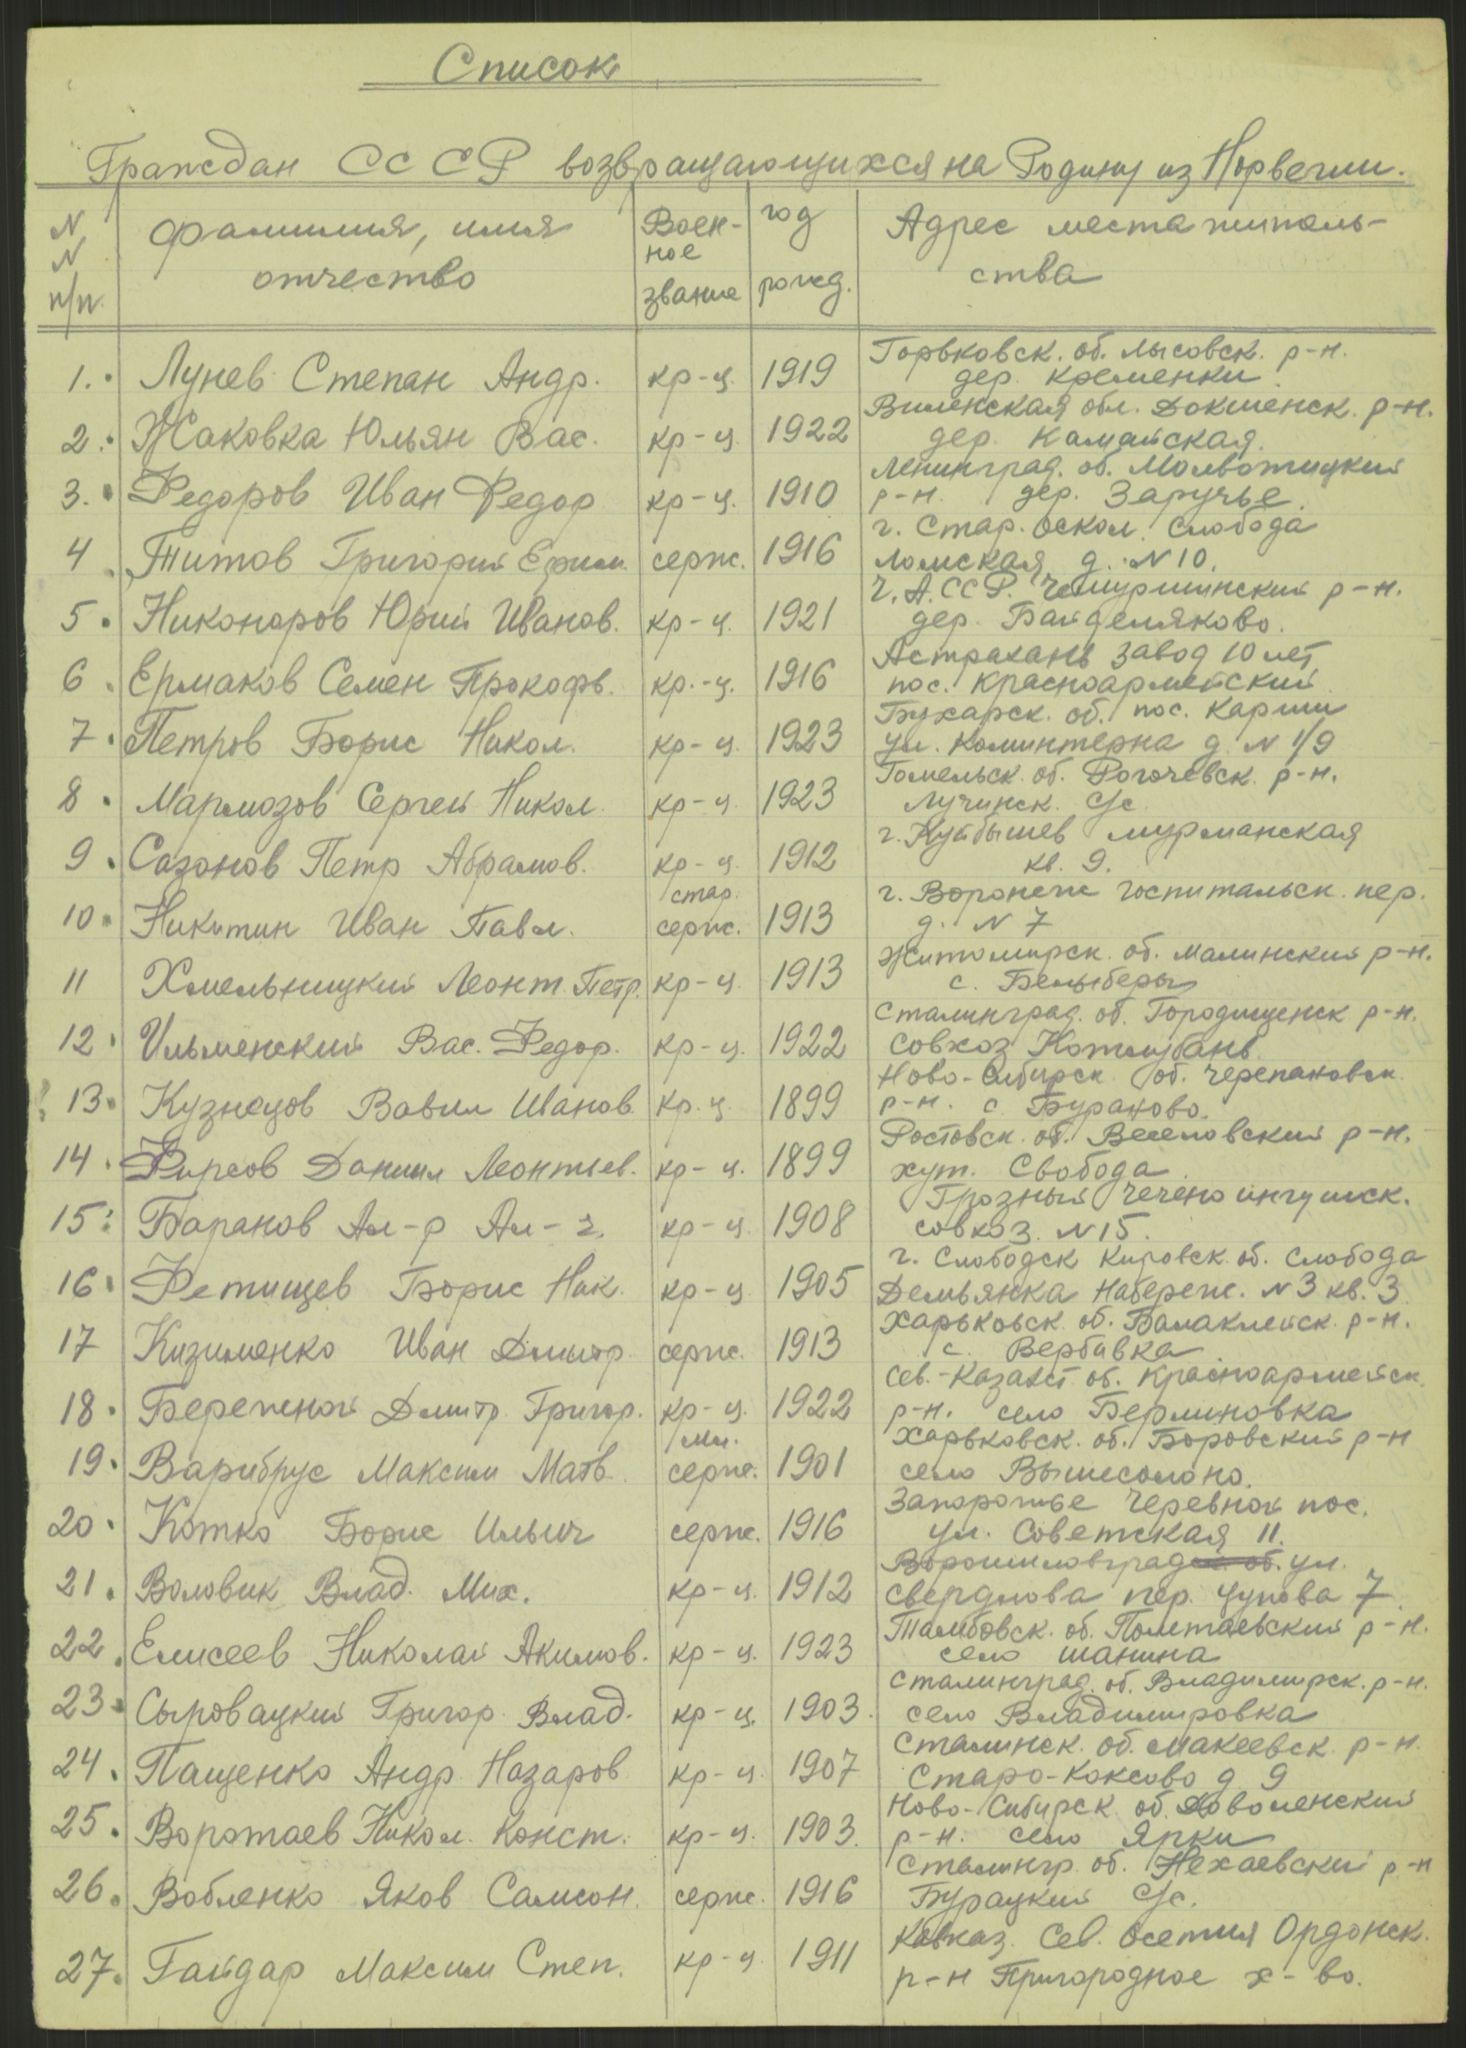 Список
Граждан СССР возвращающихся на Родину из Норвегии.
N N п/п. фамилия, имя отчество Воен-ное звание год рожд. Адрес места житель-ства
1. Лунев Степан Андр. кр-ц. 1919 Горьковск. об. Лысовск. р-н.
дер. Кременки.
2. Жаковка Юльян Вас. кр-ц. 1922 Виленская обл. Докшенск. р-н.
дер. Камайская.
3. Федоров Иван Федор кр-ц. 1910 Ленинград. об. Молвотицкий
р-н. дер. Заручье.
4 Титов Григорий Ефим. серж. 1916 г. Стар. оскол. Слобода
Ломская д. N 10.
5. Никоноров Юрий Иванов. кр-ц. 1921 Ч.А.ССР. Чемуршинский р-н.
дер. Байделяково.
6. Ермаков Семен Прокофь. кр.-ц. 1916 Астрахань завод 10 лет
пос. Красноармейский
7. Петров Борис Никол. кр-ц. 1923 Бухарск. об. пос. Карши
ул. Коминтерна д. N 1/9
8. Мармозов Сергей Никол. кр-ц. 1923 Гомельск. об. Рогачевск. р-н.
Лучинск. с/с
9. Сазонов Петр Абрамов. кр-ц. 1912 г. Куйбышев Мурманская
кв. 9.
10. Никитин Иван Павл. стар. серж. 1913 г. Воронеж Госпитальск. пер.
д. N 7
11 Хмельницкий Леонт. Петр. кр-ц. 1913 Житомирск. об. Малинский р-н.
с. Белыберы
12. Ильменский Вас. Федор. кр-ц. 1922 Сталинград. об. Городищенск р-н.
совхоз Котлубань.
13. Кузнецов Вавил Иванов. кр.ц. 1899 Ново-Сибирск. об. Черепановск
р-н. с. Бураново.
14. Фирсов Даниил Леонтьев. кр-ц. 1899 Ростовск. об. Веселовский р-н.
хут. Свобода
15. Баранов Ал-р Ал-г. кр-ц. 1908 Грозный Чечено ингушск.
совхоз. N 15.
16. Фетищев Борис Ник. кр-ц 1905 г. Слободск Кировск. об. Слобода
Демьянка Набереж. N 3 кв. 3
17 Кизименко Иван Дмитр. серж. 1913 Харьковск. об. Балаклейск. р-н.
с. Вербивка
18. Бережной Дмитр. Григор. кр-ц. 1922 Сев.-Казахст. об. Красноармейск.
р-н. село Берлиновка
19. Варибрус Максим Матв. мл. серж. 1901 Харьковск. об. Боровский р-н
село Вышесолоно.
20. Котко Борис Ильич серж. 1916 Запорожье Черевной пос.
ул. Советская 11.
21. Воловик Влад. Мих. кр-ц. 1912 Ворошиловградск. об. ул.
Свердлова пер. Чупова 7.
22. Елисеев Николай Акимов. кр-ц. 1923 Тамбовск. об. Полетаевский р-н.
село Шанина
23. Сыровацкий Григор. Влад. кр-ц. 1903. Сталинград. об. Владимирск. р-н.
село Владимировка
24. Пащенко Андр. Назаров кр-ц. 1907 Сталинск. об. Макеевск. р-н.
Старо-Коксово д 9
25. Воротаев Никол. Конст. кр-ц. 1903. Ново-Сибирск об. Доволенский
р-н. село Ярки
26. Вобленко Яков Самсон. серж. 1916 Сталингр. об. Нехаевский р-н
Бурацкий с/с.
27. Гайдар Максим Степ. кр-ц 1911 Кавказ. Сев. Осетия Ордонск.
р-н Пригородное х-во.